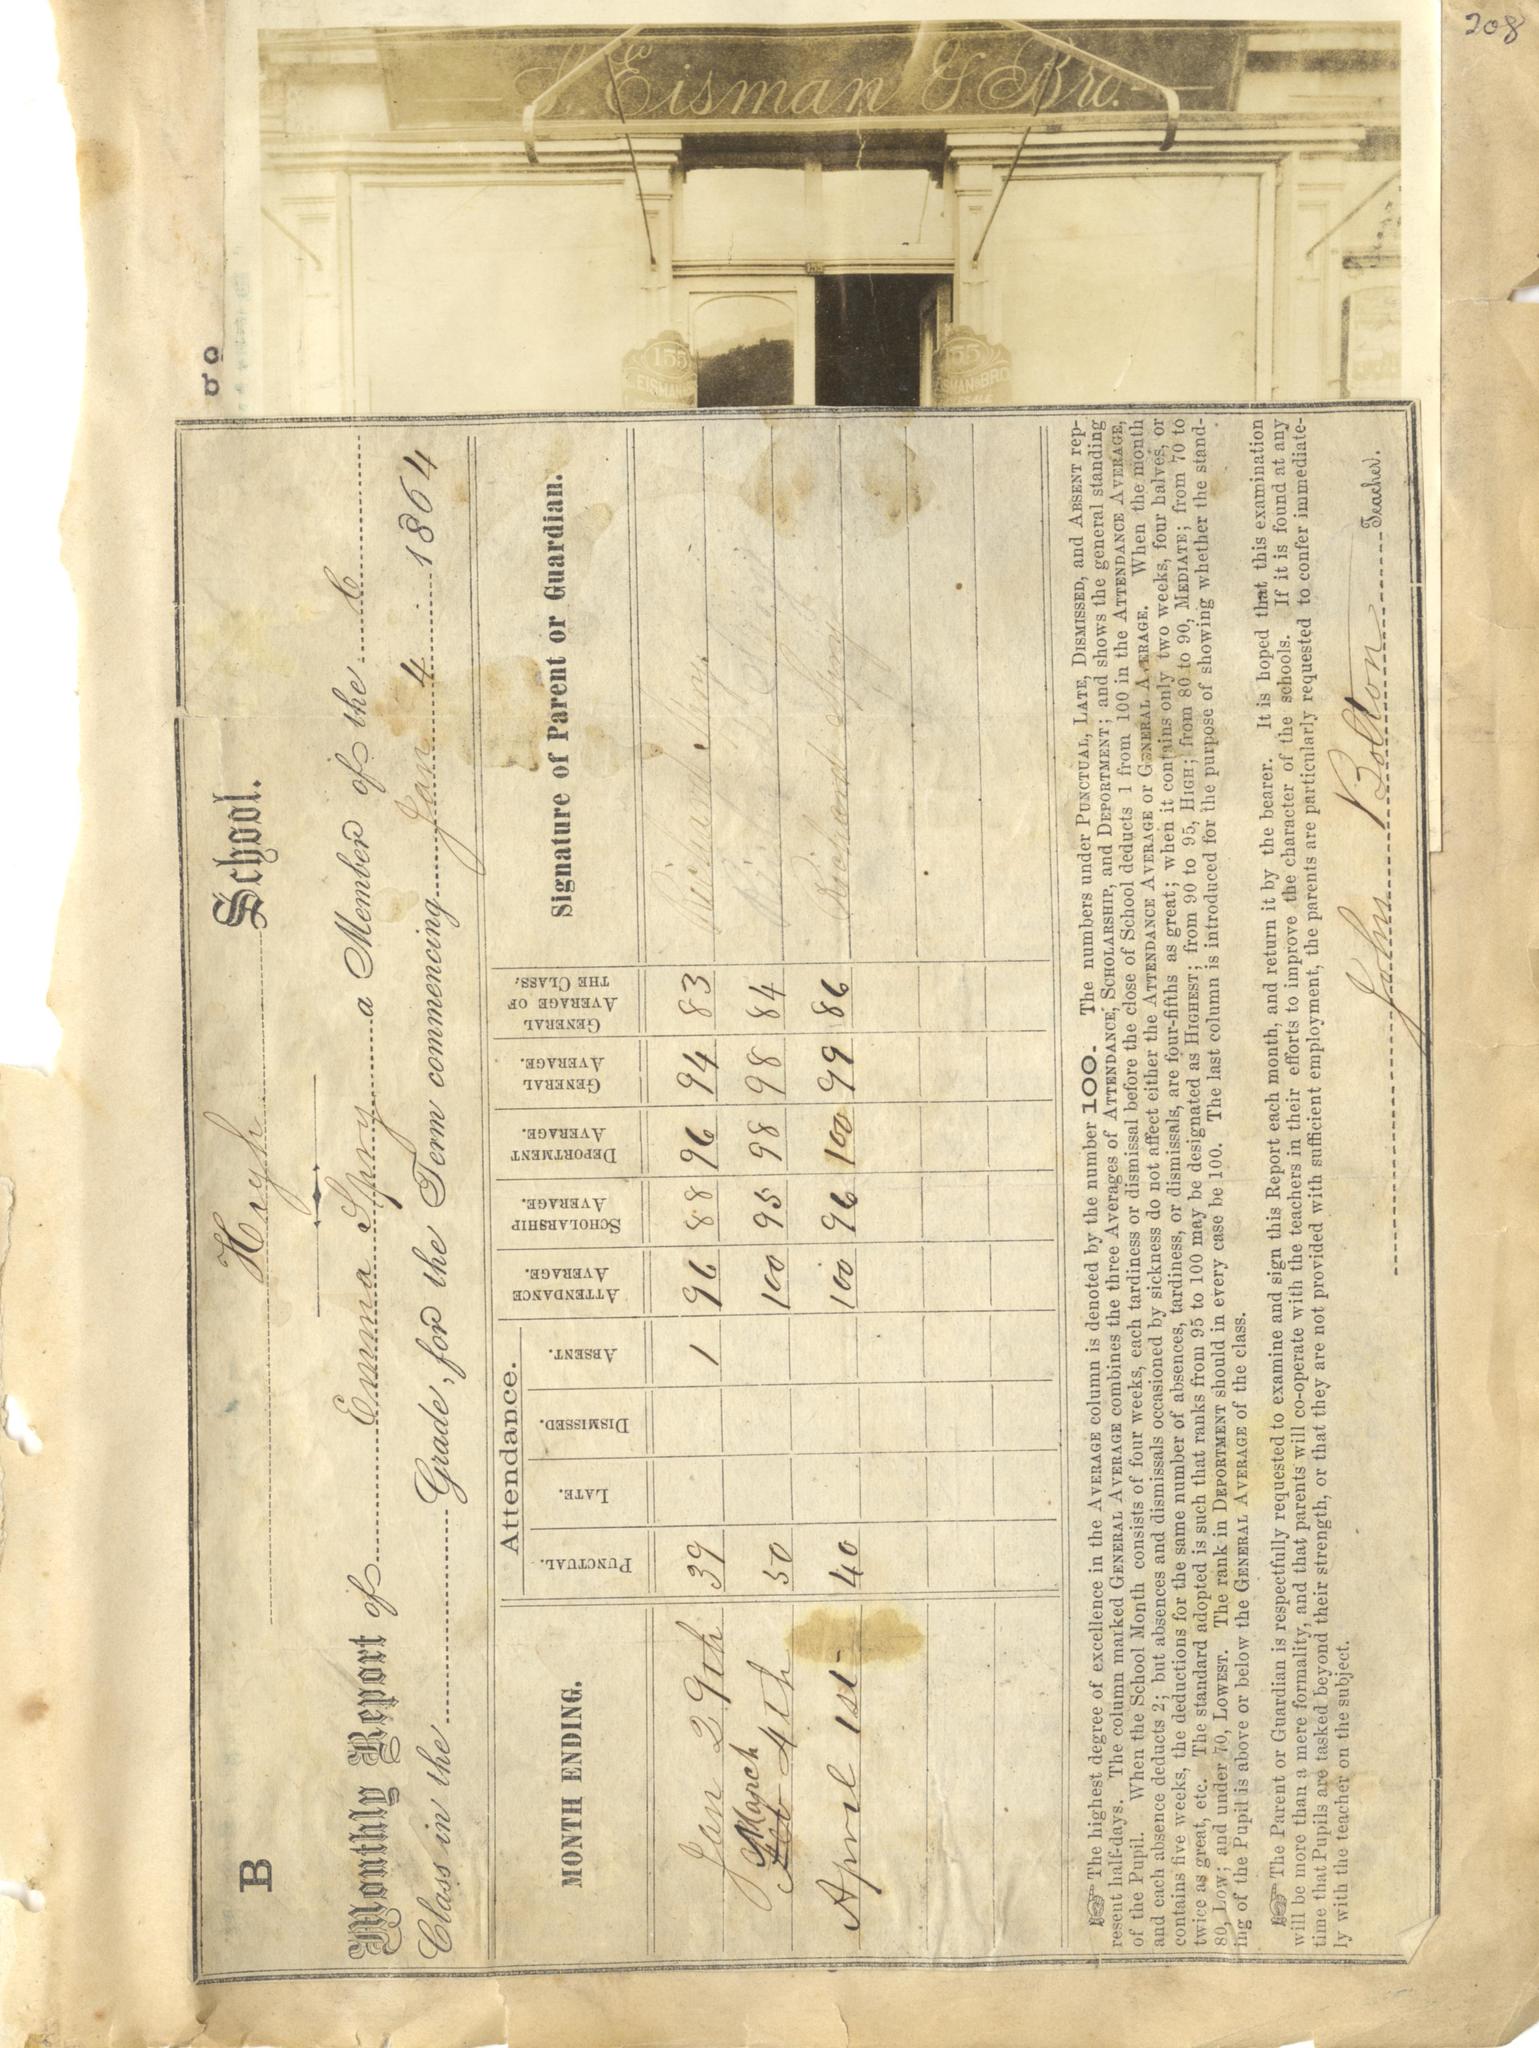 208
S. Eisman & Bro.
155
EISMAN
155
EISMAN & BRO
WHOLESALE
B
High School.
Monthly Report of Emma Spry a Member of the C
Class in the Grade, for the Term commencing Jan 4 1864
MONTH ENDING. Attendance. Signature of Parent or Guardian.
PUNCTUAL. LATE. DISMISSED. ABSENT. ATTENDANCE AVERAGE. SCHOLARSHIP AVERAGE. DEPORTMENT AVERAGE. GENERAL AVERAGE. GENERAL AVERAGE OF THE CLASS.
Jan 29th 39 1 96 88 96 94 83 Richard Spry
March 4th 50 100 95 98 98 84 Richard Spry
April 1st 40 100 96 100 99 86 Richard Spry
☞ The highest degree of excellence in the AVERAGE column is denoted by the number 100. The numbers under PUNCTUAL, LATE, DISMISSED, and ABSENT rep-
resent half-days. The column marked GENERAL AVERAGE combines the three Averages of ATTENDANCE, SCHOLARSHIP, and DEPORTMENT; and shows the general standing
of the Pupil. When the School Month consists of four weeks, each tardiness or dismissal before the close of School deducts 1 from 100 in the ATTENDANCE AVERAGE,
and each absence deducts 2; but absences and dismissals occasioned by sickness do not affect either the ATTENDANCE AVERAGE or GENERAL AVERAGE. When the month
contains five weeks, the deductions for the same number of absences, tardiness, or dismissals, are four-fifths as great; when it contains only two weeks, four halves, or
twice as great, etc. The standard adopted is such that ranks from 95 to 100 may be designated as HIGHEST; from 90 to 95, HIGH; from 80 to 90, MEDIATE; from 70 to
80, LOW; and under 70, LOWEST. The rank in DEPORTMENT should in every case be 100. The last column is introduced for the purpose of showing whether the stand-
ing of the Pupil is above or below the GENERAL AVERAGE of the class.
☞ The Parent or Guardian is respectfully requested to examine and sign this Report each month, and return it by the bearer. It is hoped that this examination
will be more than a mere formality, and that parents will co-operate with the teachers in their efforts to improve the character of the schools. If it is found at any
time that Pupils are tasked beyond their strength, or that they are not provided with sufficient employment, the parents are particularly requested to confer immediate-
ly with the teacher on the subject.
John Bolton Teacher.